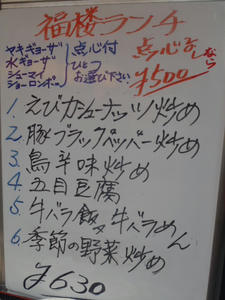 福楼ランチ
ヤキギョーザ
水ギョーザ
シューマイ
ショーロンポー
点心付
ひとつ
お選び下さい
点心なしなら
¥500
1. えびカシューナッツ炒め
2. 豚ブラックペッパー炒め
3. 鳥辛味炒め
4. 五目豆腐
5. 牛バラ飯 牛バラめん
6. 季節の野菜炒め
¥630